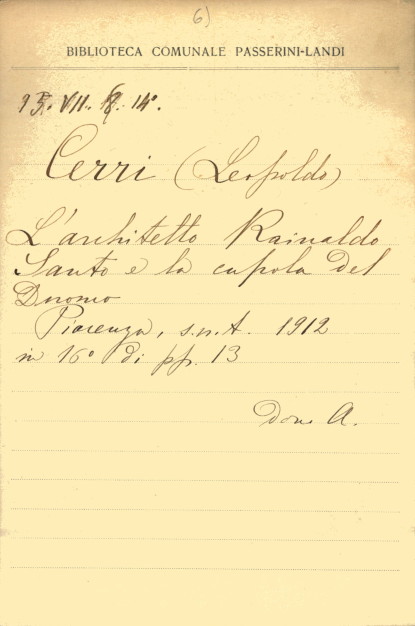 6)
BIBLIOTECA COMUNALE PASSERINI-LANDI
93. VII. 18. 14º.
Cerri (Leopoldo)
L'architetto Rainaldo
Santo e la cupola del
Duomo
Piacenza, s.n.t. 1912
in 16º di pp. 13
Dono A.